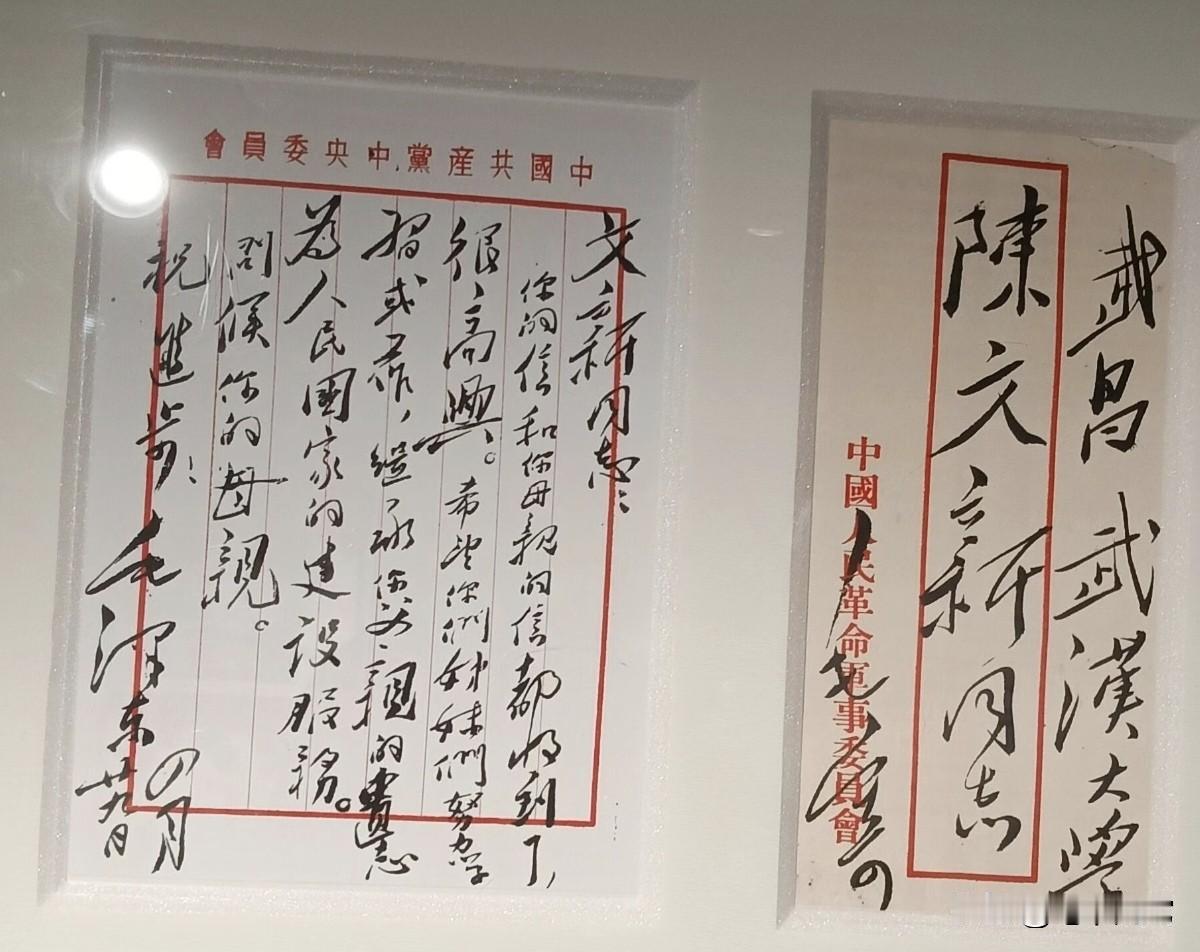 中國共産黨中央委員會
文新同志：
你的信和你母親的信都收到了，
很高興。希望你們姊妹們努力学
習或工作，繼承你父親的遺志
為人民國家的建設服務。
問候你的母親。
祝進步！
毛澤東
四月
廿九日
武昌武漢大學
陳文新同志
中國人民革命軍事委員會